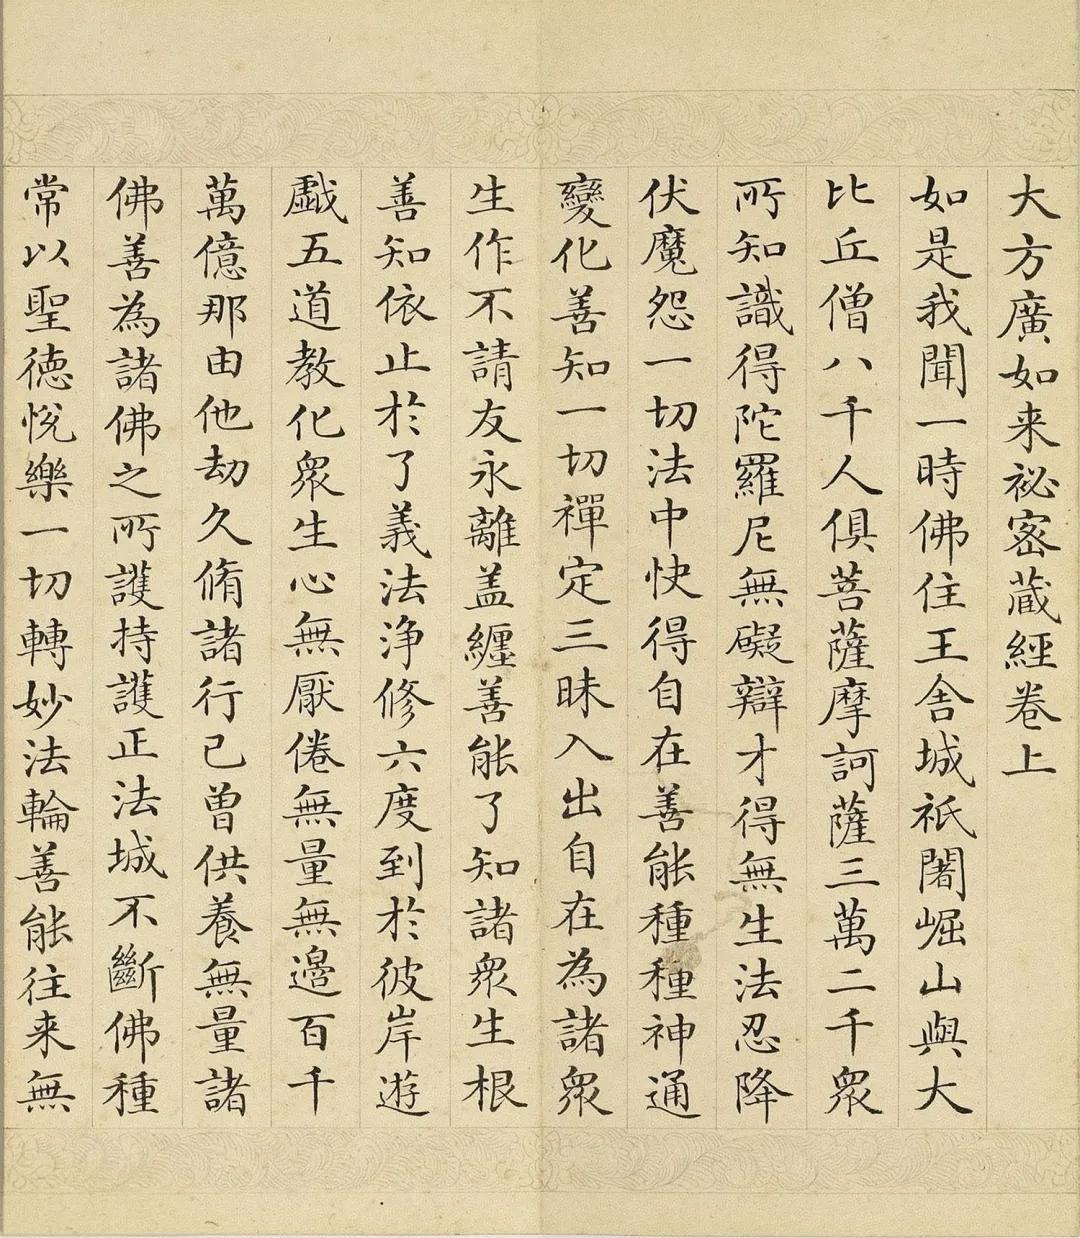 大方廣如来祕宻蔵經卷上
如是我聞一時佛住王舍城祇闍崛山與大
比丘僧八千人俱菩薩摩訶薩三萬二千衆
所知識得陀羅尼無礙辯才得無生法忍降
伏魔怨一切法中快得自在善能種種神通
變化善知一切禪定三昧入出自在為諸衆
生作不請友永離盖纏善能了知諸衆生根
善知依止於了義法淨修六度到於彼岸遊
戲五道教化衆生心無厭倦無量無邊百千
萬億那由他劫久脩諸行已曾供養無量諸
佛善為諸佛之所護持護正法城不斷佛種
常以聖德悅樂一切轉妙法輪善能往来無